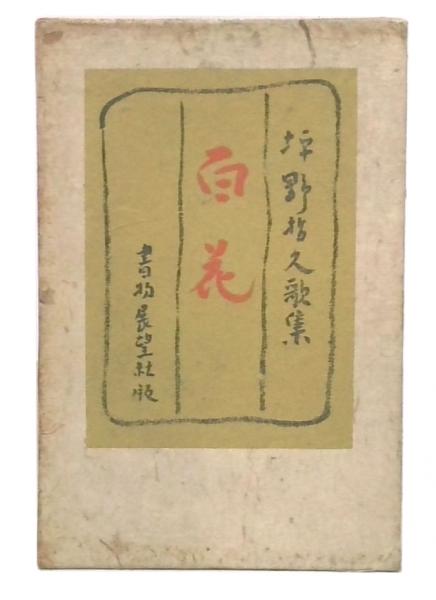 坪野哲久歌集
百花
書物展望社版